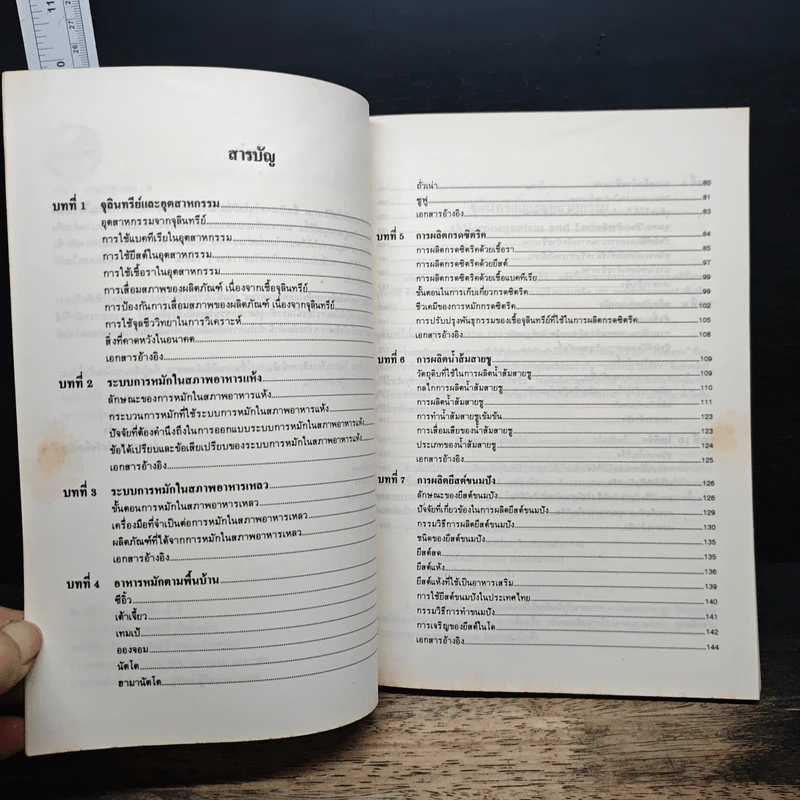 สารบัญ
บทที่ 1 จุลินทรีย์และอุตสาหกรรม
อุตสาหกรรมจากจุลินทรีย์
การใช้แบคทีเรียในอุตสาหกรรม
การใช้ยีสต์ในอุตสาหกรรม
การใช้เชื้อราในอุตสาหกรรม
การเสื่อมสภาพของผลิตภัณฑ์ เนื่องจากเชื้อจุลินทรีย์
การป้องกันการเสื่อมสภาพของผลิตภัณฑ์ เนื่องจากจุลินทรีย์
การใช้จุลชีววิทยาในการวิเคราะห์
สิ่งที่คาดหวังในอนาคต
เอกสารอ้างอิง
บทที่ 2 ระบบการหมักในสภาพอาหารแห้ง
ลักษณะของการหมักในสภาพอาหารแห้ง
กระบวนการหมักที่ใช้ระบบการหมักในสภาพอาหารแห้ง
ปัจจัยที่ต้องคำนึงถึงในการออกแบบระบบการหมักในสภาพอาหารแห้ง
ข้อได้เปรียบและข้อเสียเปรียบของระบบการหมักในสภาพอาหารแห้ง
เอกสารอ้างอิง
บทที่ 3 ระบบการหมักในสภาพอาหารเหลว
ขั้นตอนการหมักในสภาพอาหารเหลว
เครื่องมือที่จำเป็นต่อการหมักในสภาพอาหารเหลว
ผลิตภัณฑ์ที่ได้จากการหมักในสภาพอาหารเหลว
เอกสารอ้างอิง
บทที่ 4 อาหารหมักตามพื้นบ้าน
ซีอิ้ว
เต้าเจี้ยว
เทมเป้
อองจอม
นัตโต
ฮามานัตโต
ถั่วเน่า 80
ซูฟู 81
เอกสารอ้างอิง 83
บทที่ 5 การผลิตกรดซิตริค 84
การผลิตกรดซิตริคด้วยเชื้อรา 85
การผลิตกรดซิตริคด้วยยีสต์ 97
การผลิตกรดซิตริคด้วยเชื้อแบคทีเรีย 99
ขั้นตอนในการเก็บเกี่ยวกรดซิตริค 99
ชีวเคมีของการหมักกรดซิตริค 102
การปรับปรุงพันธุกรรมของเชื้อจุลินทรีย์ที่ใช้ในการผลิตกรดซิตริค 105
เอกสารอ้างอิง 108
บทที่ 6 การผลิตน้ำส้มสายชู 109
วัตถุดิบที่ใช้ในการผลิตน้ำส้มสายชู 109
กลไกการผลิตน้ำส้มสายชู 110
การผลิตน้ำส้มสายชู 111
การทำน้ำส้มสายชูเข้มข้น 123
การเสื่อมเสียของน้ำส้มสายชู 123
ประเภทของน้ำส้มสายชู 124
เอกสารอ้างอิง 125
บทที่ 7 การผลิตยีสต์ขนมปัง 126
ลักษณะของยีสต์ขนมปัง 126
ปัจจัยที่เกี่ยวข้องในการผลิตยีสต์ขนมปัง 127
กรรมวิธีการผลิตยีสต์ขนมปัง 130
ชนิดของยีสต์ขนมปัง 135
ยีสต์สด 135
ยีสต์แห้ง 136
ยีสต์แห้งที่ใช้เป็นอาหารเสริม 139
การใช้ยีสต์ขนมปังในประเทศไทย 140
กรรมวิธีการทำขนมปัง 141
การเจริญของยีสต์ในโด 142
เอกสารอ้างอิง 144